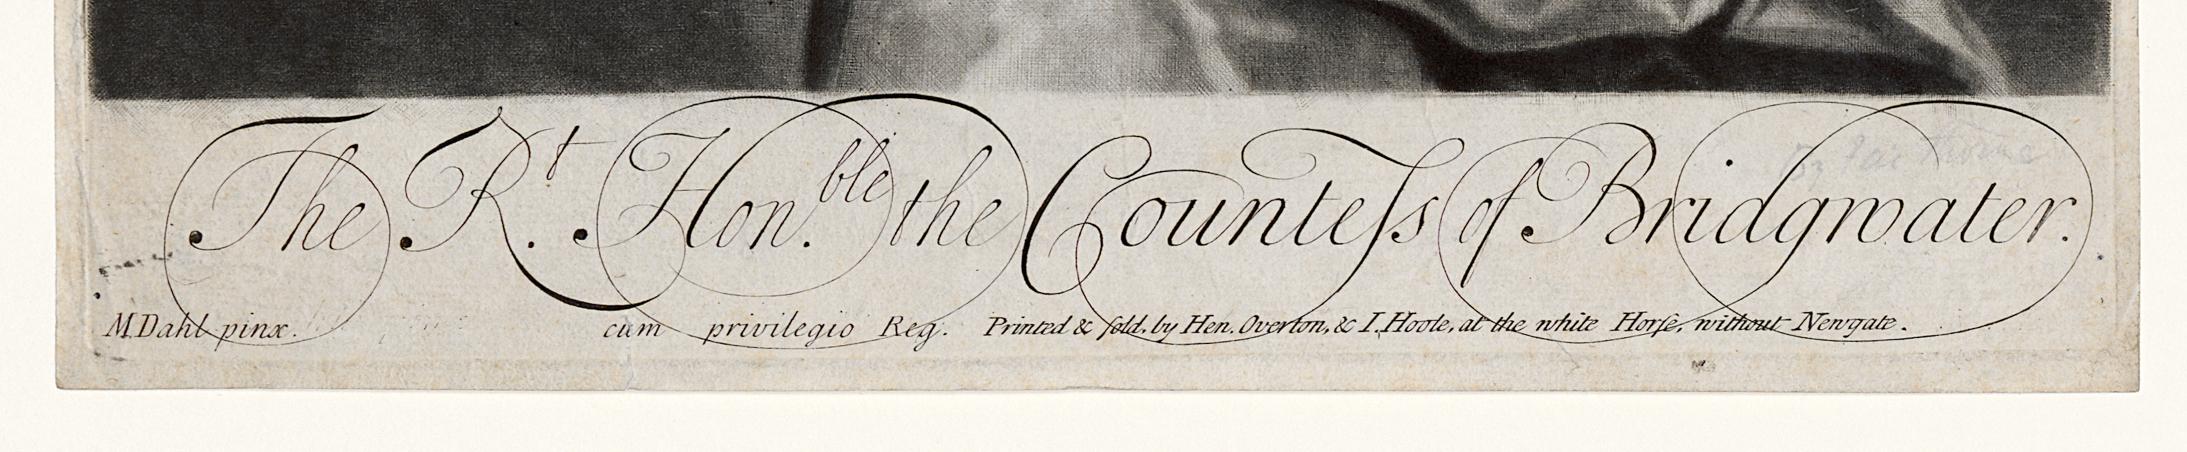 The R.t Hon.ble the Counteſs of Bridgwater.
M Dahl pinx. cum privilegio Reg. Printed & ſold, by Hen. Overton, & I. Hoole, at the white Horſe, without Newgate.